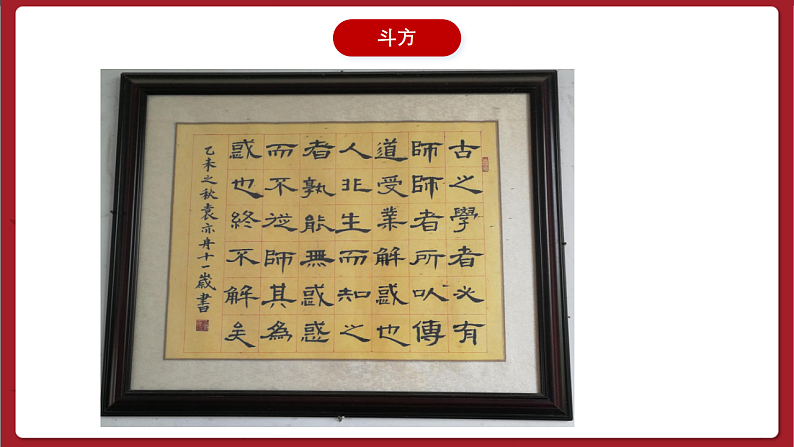 斗方
古之學者必有
師師者所以傳
道受業解惑也
人非生而知之
者孰能無惑惑
而不從師其為
惑也終不解矣
乙未之秋袁亦舟十一歲書